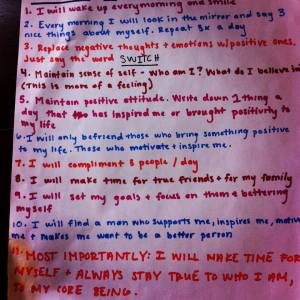 1. I will wake up every morning and smile
2. Every morning I will look in the mirror and say 3
nice things about myself. Repeat 3x a day
3. Replace negative thoughts + emotions w/positive ones.
Just say the word SWITCH
4. Maintain sense of self - Who am I? What do I believe in?
(This is more of a feeling)
5. Maintain positive attitude. Write down 1 thing a
day that has inspired me or brought positivity to
my life
6. I will only befriend those who bring something positive
to my life. Those who motivate + inspire me.
7. I will compliment 3 people / day
8. I will make time for true friends + for my family
9. I will set my goals + focus on them + bettering
myself
10. I will find a man who supports me, inspires me, motiv
me + makes me want to be a better person
11. MOST IMPORTANTLY: I WILL MAKE TIME FOR
MYSELF + ALWAYS STAY TRUE TO WHO I AM,
TO MY CORE BEING.